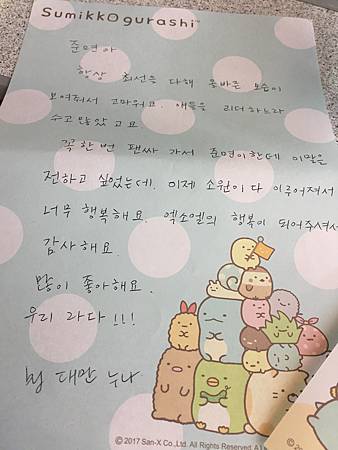 Sumikkogurashi™
준면아
항상 최선을 다해 올바른 모습이
보여줘서 고마워요. 애들을 리더하느라
수고 많았고요.
꼭 한번 팬싸 가서 준면이한테 이말은
전하고 싶었는데. 이제 소원이 다 이루어져서
너무 행복해요. 엑소엘의 행복이 되어주셔서
감사해요.
많이 좋아해요.
우리 라다!!!
by 대만 누나
© 2017 San-X Co., Ltd. All Rights Reserved.